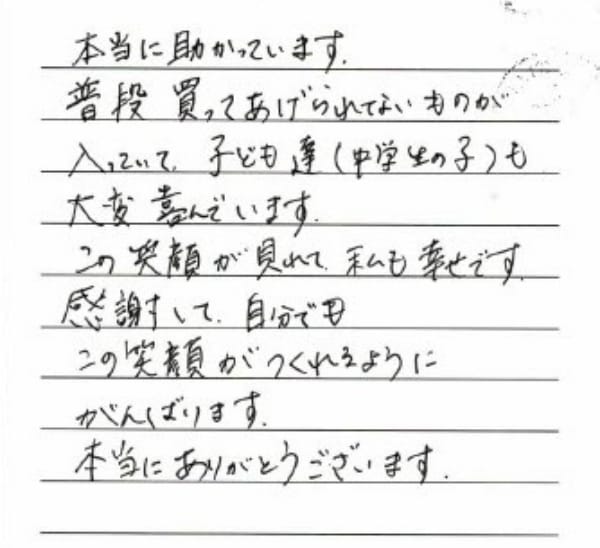 本当に助かっています.
普段 買ってあげられてないものが
入っていて、子ども達(中学生の子)も
大変 喜んでいます.
この笑顔が見れて、私も幸せです.
感謝して、自分でも
この笑顔がつくれるように
がんばります.
本当にありがとうございます.